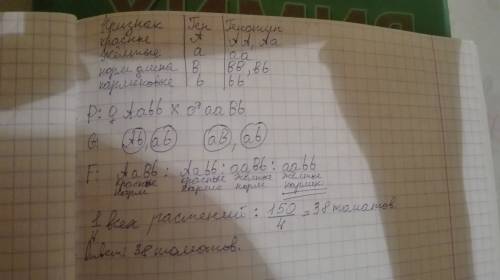 Признак | Ген | Генотип
красные | А | АА, Аа
жёлтые | а | аа
норм длина | В | ВВ, Вb
карликовые | b | bb
P: ♀ Aabb X ♂ aaBb
G: Ab, ab aB, ab
F: AaBb : Aabb : aaBb : aabb
красные красные желтые желтые
норм карлик норм карлик
1/4 всех растений : 150/4 = 38 томатов
Ответ: 38 томатов.